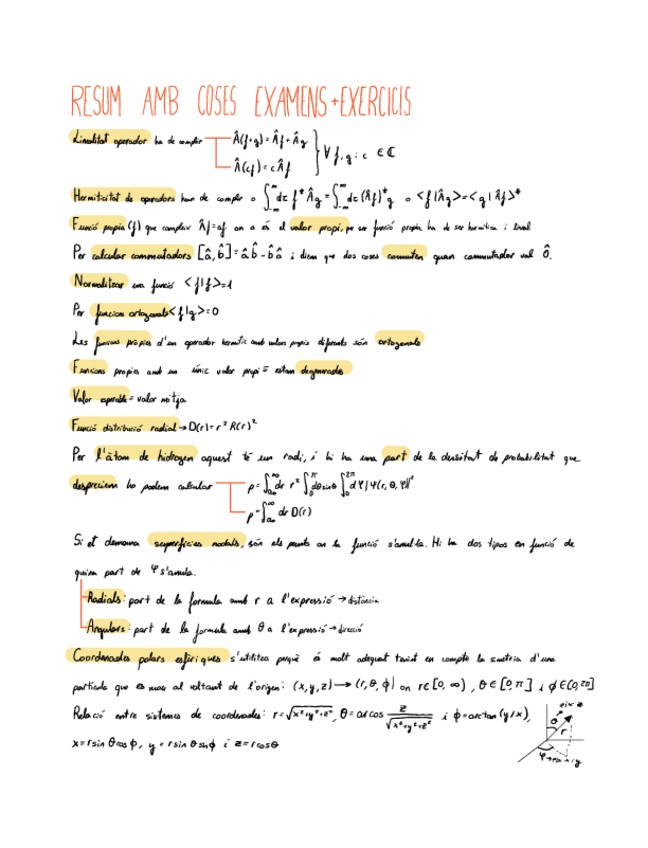 RESUM AMB COSES EXAMENS+EXERCICIS
Linealitat operador ha de complir Â(f+g)=Âf+Âg
Â(cf)=cÂf } ∀ f,g i c ∈ ℂ
Hermiticitat de operadors han de complir o ∫_{-∞}^{∞} dτ f* Âg = ∫_{-∞}^{∞} dτ (Âf)* g o <f|Âg>=<g|Âf>*
Funció pròpia (f) que compleix Âf=af on a és el valor propi, funció pròpia ha de ser hermítica i lineal
Per calcular commutadors [â,b̂]=âb̂-b̂â i diem que dos coses commuten quan commutador val 0̂.
Normalitzar una funció <f|f>=1
Per funcions ortogonals <f|g>=0
Les funcions pròpies d'un operador hermític amb valors propis diferents són ortogonals
Funcions propies amb un únic valor propi = estan degenerades
Valor esperable = valor mitja
Funció distribució radial → D(r)=r² R(r)²
Per l'àtom de hidrogen aquest té un radi, i hi ha una part de la densitat de probabilitat que
despreciem ho podem calcular p=∫_{a₀}^{∞} dr r² ∫_0^π dθ sinθ ∫_0^{2π} dφ |Ψ(r, θ, φ)|²
p=∫_{a₀}^{∞} dr D(r)
Si et demana superfícies nodals, són els punts on la funció s'anul·la. Hi ha dos tipos en funció de
quina part de Ψ s'anula.
Radials: part de la formula amb r a l'expressió → distància
Angulars: part de la formula amb θ a l'expressió → direcció
Coordenades polars esfèriques s'utilitza perquè és molt adequat tenint en compte la simetria d'una
partícula que es mou al voltant de l'origen: (x,y,z) → (r, θ, ϕ) on r∈[0, ∞), θ∈[0,π] i ϕ∈[0,2π]
Relació entre sistemes de coordenades: r=√(x²+y²+z²), θ=arcos z/√(x²+y²+z²) i ϕ=arctan(y/x),
x=rsinθcosϕ, y=rsinθsinϕ i z=rcosθ
eix z
θ
r